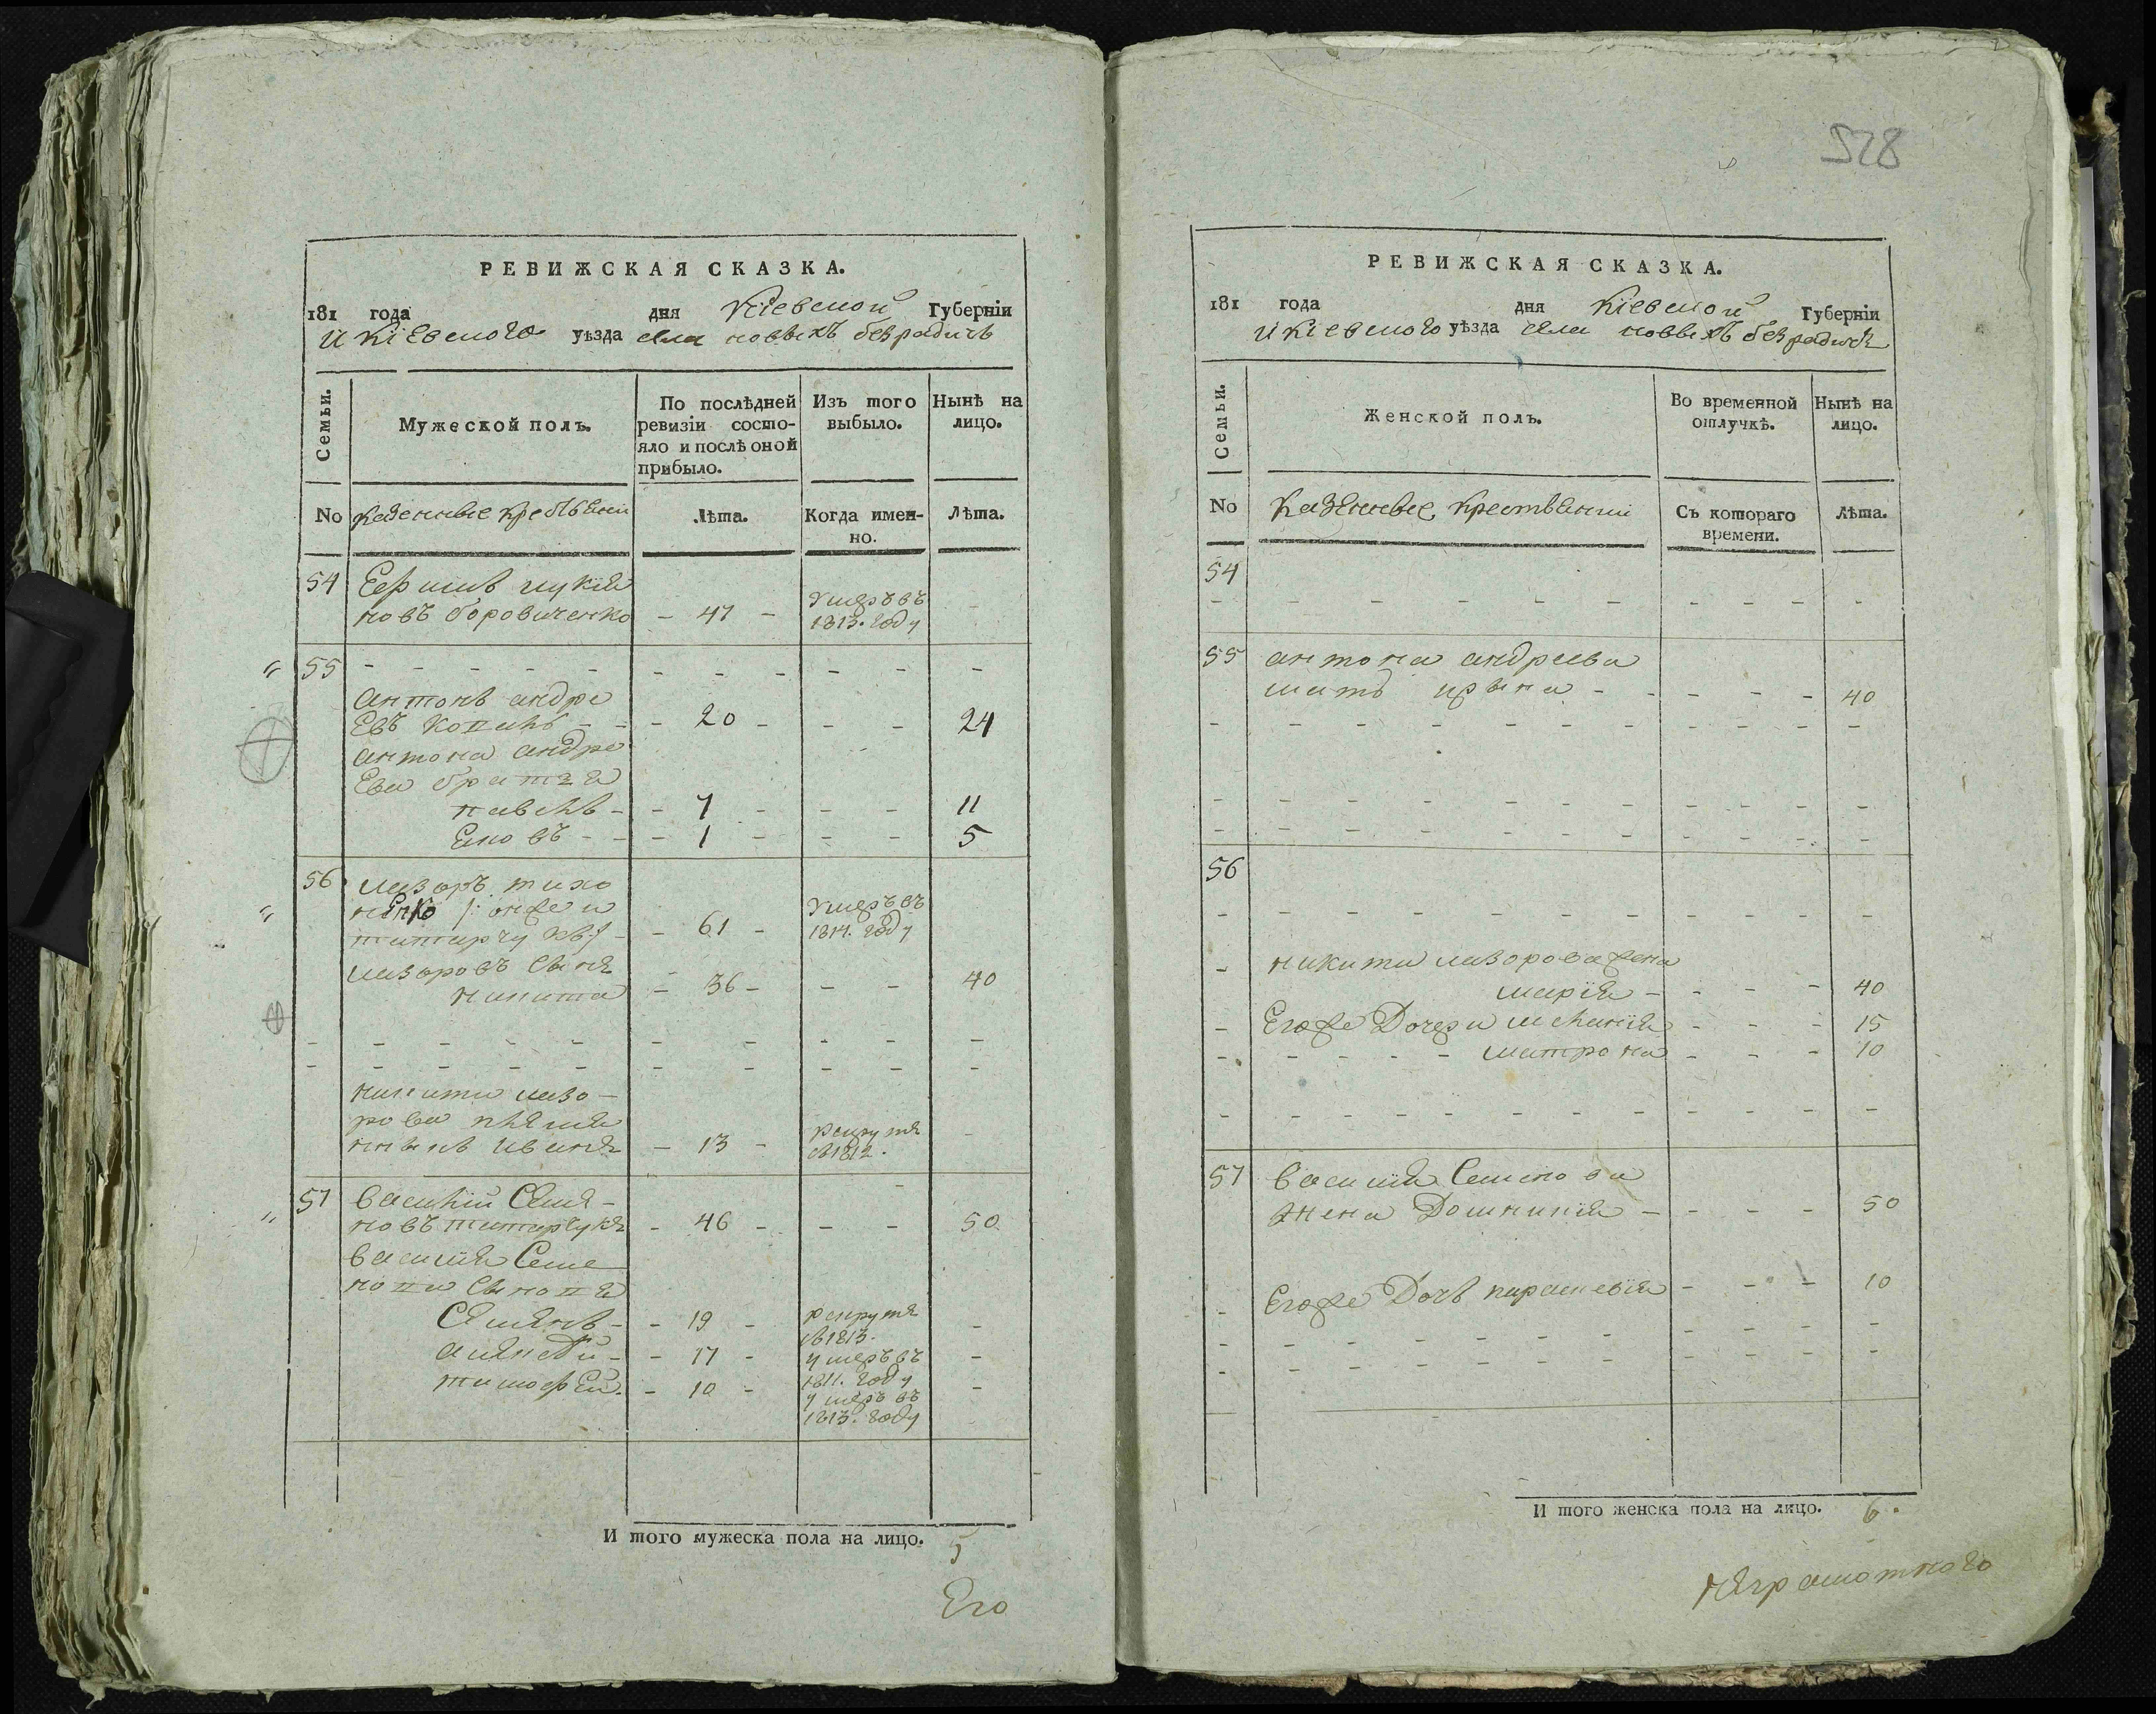 РЕВИЖСКАЯ СКАЗКА.
181 года дня Кіевской Губерніи
и Кіевского уѣзда села новыхъ безрадичь
Семьи.
Мужеской полъ.
По послѣдней ревизіи состо-
яло и послѣ оной
прибыло.
Изъ того
выбыло.
Нынѣ на
лицо.
No казенные
Лѣта.
Когда имен-
но.
Лѣта.
54
новъ боровиченко - 47 - умеръ въ
1813. году
55
антонъ андре
евъ - 20 - 24
антона андре
ева братья
павелъ - 7 - 11
- 1 - 5
56 лазоръ тихо
ненко - 61 - умеръ въ
1814. году
лазоровъ сынъ
никита - 36 - 40
никити лазо-
рова племя
нныкъ иванъ - 13 - рекрутъ
в 1812.
57 василій Семе-
новъ титарчукъ - 46 - 50
василія Семе
нова сыновя
Семенъ - 19 - рекрутъ
в 1813.
алексѣй - 17 - умеръ въ
1811. году
тимофей - 10 - умеръ въ
1813. году
И того мужеска пола на лицо. 5
Его
528
РЕВИЖСКАЯ СКАЗКА.
181 года дня Кіевской Губерніи
и Кіевского уѣзда села новыхъ безрадичь
Семьи.
Женской полъ.
Во временной
отлучкѣ.
Нынѣ на
лицо.
No Казенные крестьянки
Съ котораго
времени.
Лѣта.
54
55 антона андреева
мать ирына - 40
56
никити лазорова жена
марія - 40
Егоже Дочери меланія - 15
матрона - 10
57 василія Семенова
жена Домникія - 50
Егоже Дочь параскевія - 10
И того женска пола на лицо. 6.
неграмотного